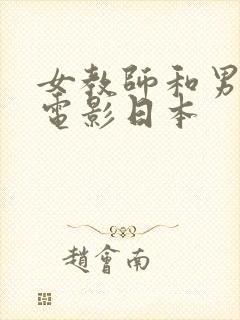 女教師和男
電影日本
趙會南